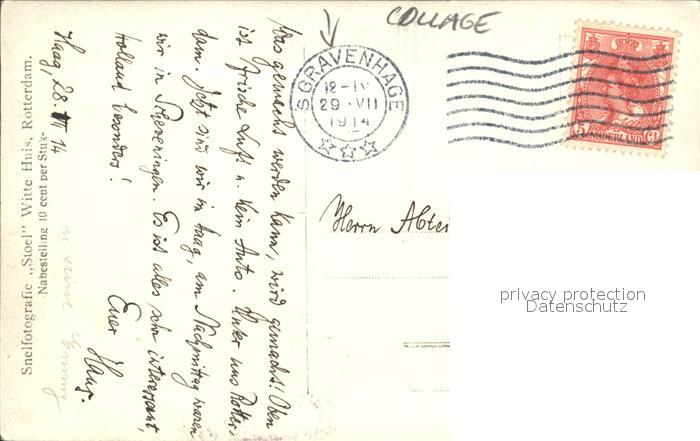 COLLAGE
'S GRAVENHAGE
12-IV
29.VII
1914
5 NEDERLAND CT
Was gemacht werden kann, wird gemacht! Oben
ist frische Luft u. kein Auto. Unter uns Rotter-
dam. Jetzt sind wir in Haag, am Nachmittag waren
wir in Scheveningen. Es ist alles sehr interessant,
Holland besonders!
Euer Hans.
Haag, 28. VII 14
Snelfotografie „Stoel" Witte Huis, Rotterdam.
Nabestelling 10 cent per Stuk.
Herrn Abtei
privacy protection
Datenschutz